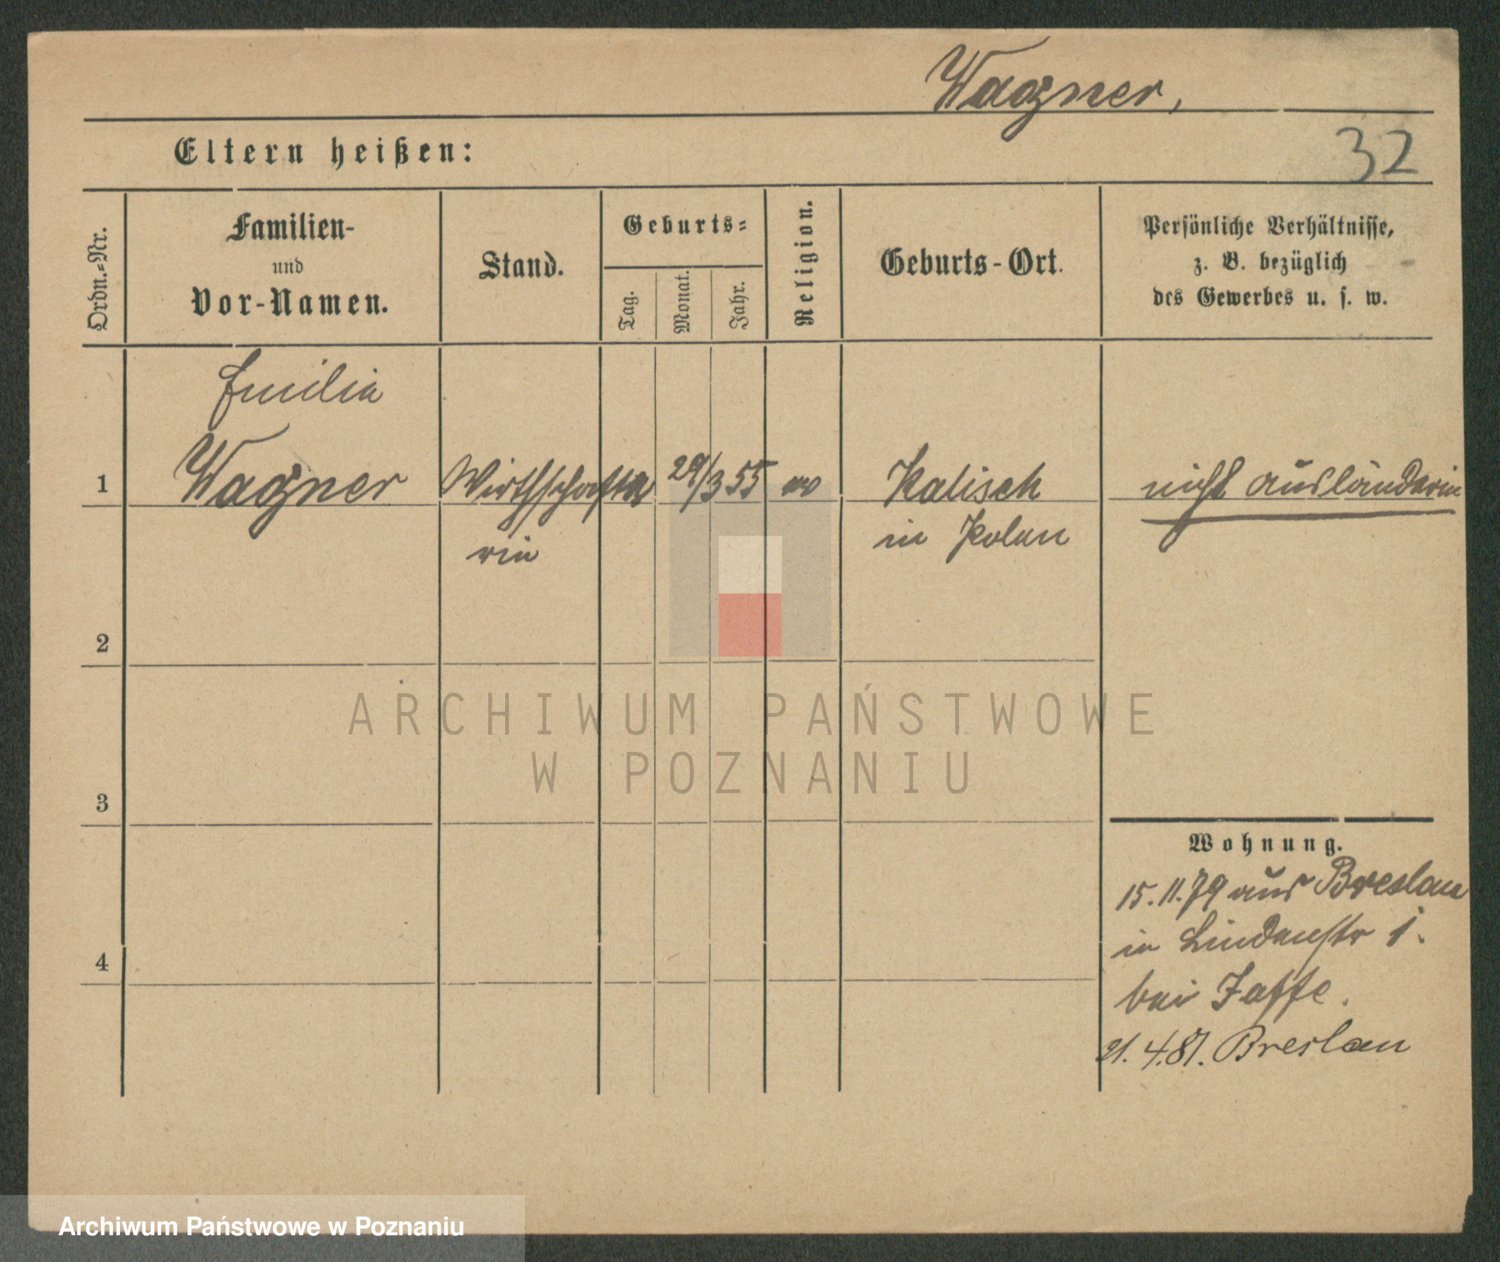 Wagner,
Eltern heißen:
32
Ordn.-Nr.
Familien-
und
Vor-Namen.
Stand.
Geburts-
Tag.
Monat.
Jahr.
Religion.
Geburts-Ort.
Persönliche Verhältnisse,
z. B. bezüglich
des Gewerbes u. s. w.
Emilia
1 Wagner Wirthschafte 29/3 55 Kalisch nicht Ausländerin
rin in Polen
2
3
4
Wohnung.
15.11.79 aus Breslau
in Lindenstr 1.
bei Jaffe.
21.4.81. Breslau
ARCHIWUM PAŃSTWOWE
W POZNANIU
Archiwum Państwowe w Poznaniu